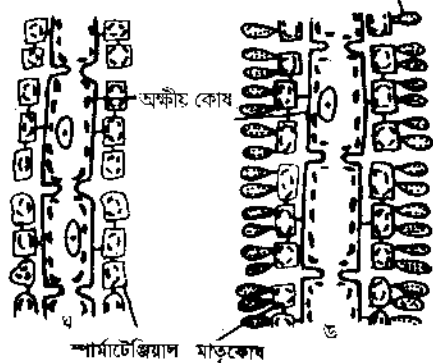 অক্ষীয় কোষ
ঘ
ঙ
স্পার্মাটেঞ্জিয়াল মাতৃকোষ